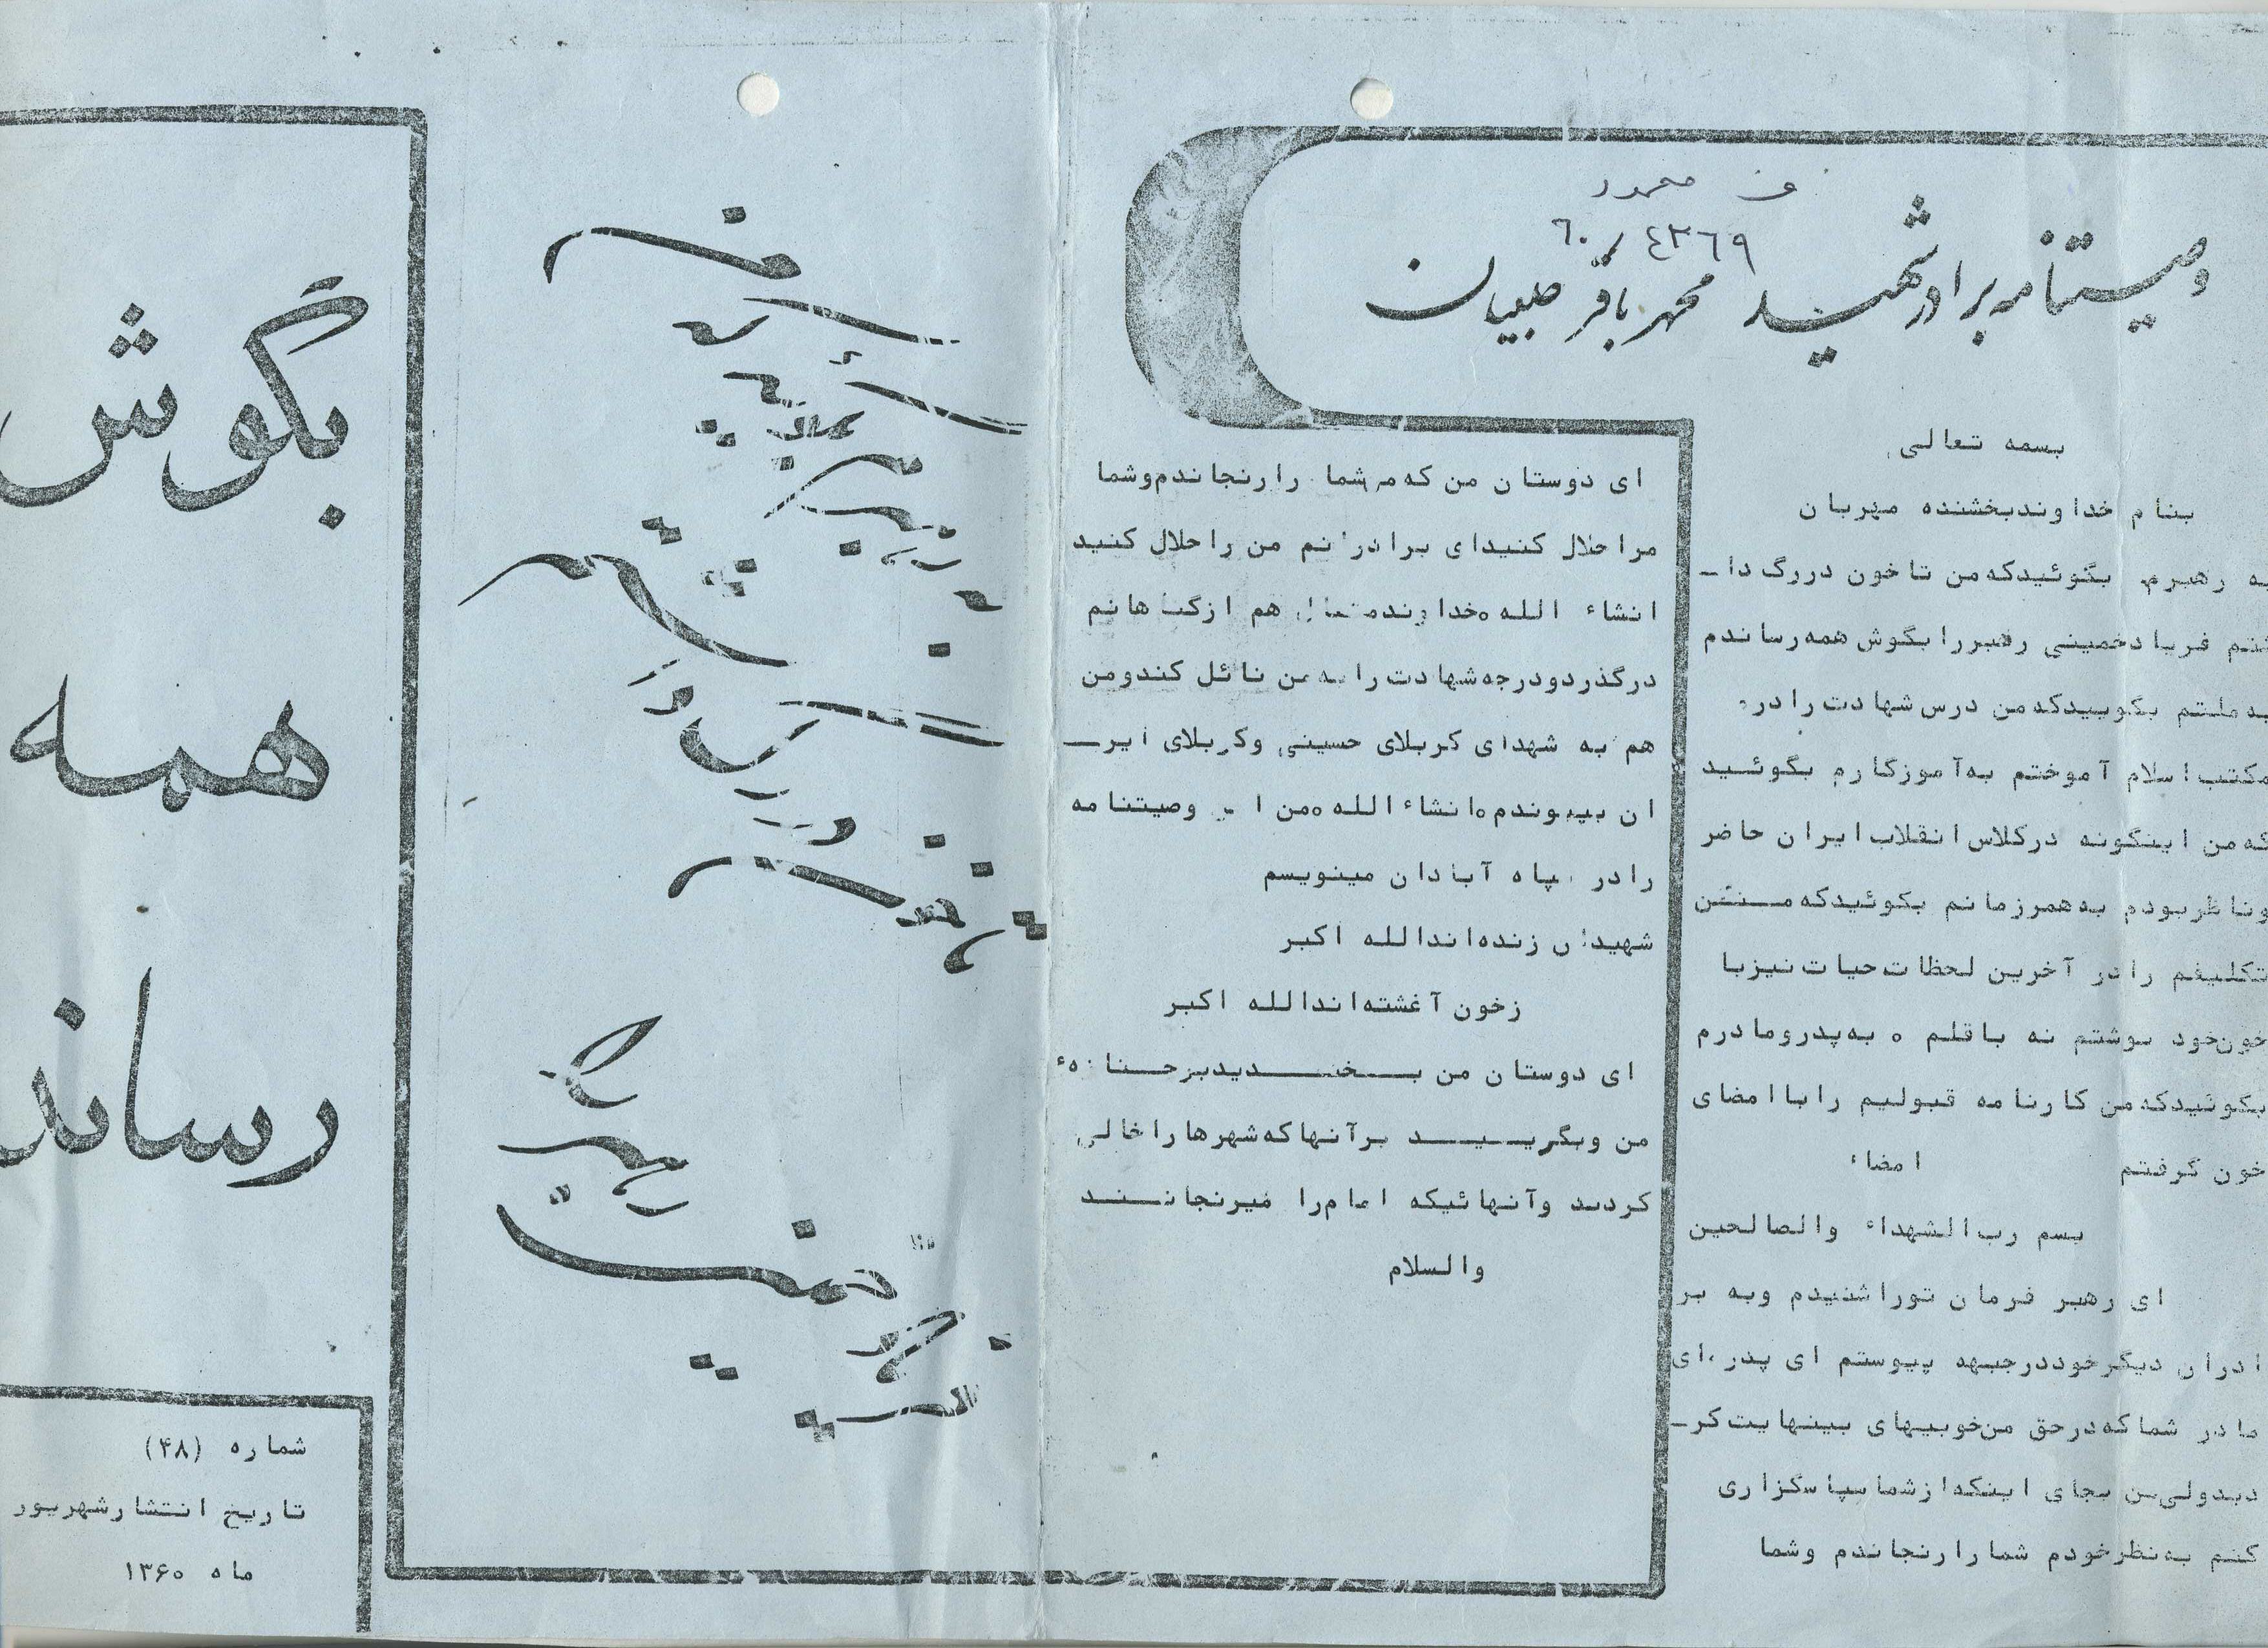 ف محمود
٤٣٦٩ / ٦٠
وصیتنامه برادر شهید محمد باقر طبیبیان
بسمه تعالی
بنام خداوندبخشنده مهربان
به رهبرم بگوئیدکه من تا خون دررگ دا ـ
شتم فریاد خمینی رهبررا بگوش همه رساندم
به ملتم بگوییدکه من درس شهادت را در
مکتب اسلام آموختم به آموزگارم بگوئـید
که من اینگونه درکلاس انقلاب ایران حاضر
وناظربودم به همرزمانم بگوئیدکه مـن
تکلیفم را در آخرین لحظات حیات نیزبا
خون خود نوشتم نه با قلم ه به پدرومادرم
بگوئیدکه من کارنامه قبولیم را با امضای
خون گرفتم امضاء
بسم رب الشهداء والصالحین
ای رهبر فرمان تورا شنیدم وبه بر
ادران دیگرخوددرجبهه پیوستم ای پدر ،ای
مادر شما که درحق من خوبیهای بینهایت کرـ
دیدولی من بجای اینکه ازشما سپاسگزاری
کنم به نظرخودم شما را رنجاندم وشما
ای دوستان من که شما را رنجاندم وشما
مرا حلال کنیدای برادرانم من را حلال کنید
انشاء الله ه خداوندمتعال هم ازگناهانم
درگذردودرجه شهادت را به من نائل کندومن
هم به شهدای کربلای حسینی وکربلای ایرـ
ان بپیوندم ه انشاء الله ه من این وصیتنامه
را در سپاه آبادان مینویسم
شهیدان زنده اندالله اکبر
زخون آغشته اندالله اکبر
ای دوستان من بـخنـدیدبرجنازهء
من وبگریـیـد برآنها که شهرها را خالی
کردند وآنهائیکه امام را میرنجانـند
والسلام
بگوش
همه
رساند
شماره (۴۸)
تاریخ انتشارشهریور
ماه ۱۳۶۰